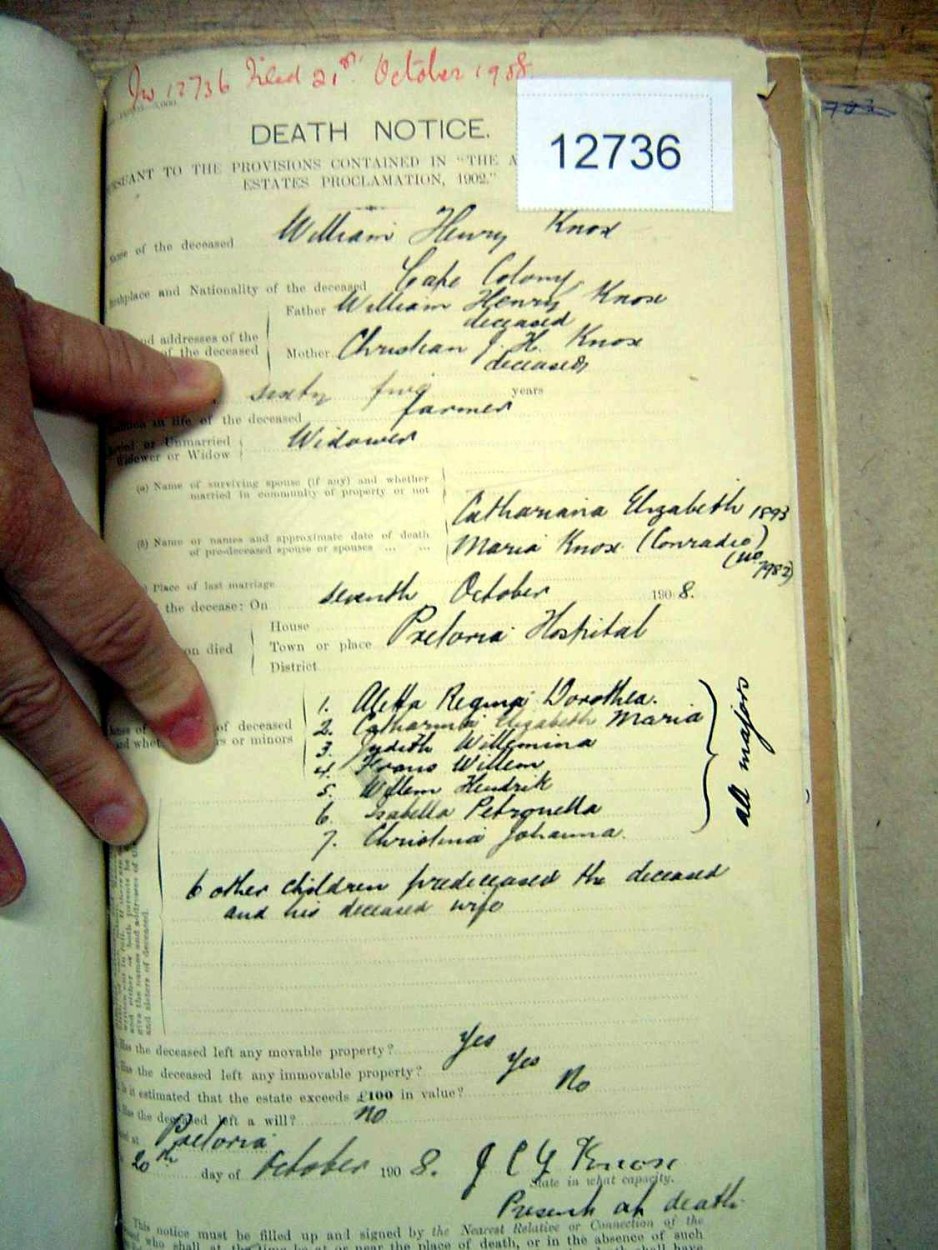 12736 Filed 21st October 1908.
DEATH NOTICE.
12736
TO THE PROVISIONS CONTAINED IN "THE
ESTATES PROCLAMATION, 1902."
of the deceased William Henry Knox
and Nationality of the deceased Cape Colony
Father William Henry Knox
deceased
addresses of the
of the deceased
Mother Christian J. H. Knox
deceased
sixty five years
in life of the deceased farmer
or Unmarried
Widower or Widow
Widower
(a) Name of surviving spouse (if any) and whether
married in community of property or not
Catharina Elizabeth 1893
(b) Name or names and approximate date of death
of pre-deceased spouse or spouses ... ...
Maria Knox (Conradie)
(no 7982)
Place of last marriage
the decease: On seventh October 1908.
House
on died Town or place Pretoria Hospital
District
1. Aletta Regina Dorothea.
of deceased 2. Catharina Elizabeth Maria
or minors 3. Judith Willemina
4. Frans Willem
5. Willem Hendrik
6. Isabella Petronella
7. Christina Johanna.
all majors
6 other children predeceased the deceased
and his deceased wife
give the names and addresses of
and sisters of deceased.
Has the deceased left any movable property? Yes
the deceased left any immovable property? Yes
it estimated that the estate exceeds £100 in value? No
the deceased left a will? no
at Pretoria
20th day of October 1908. J C G Knox
State in what capacity.
Present at death
This notice must be filled up and signed by the Nearest Relative or Connection of the
who shall at the time be at or near the place of death, or in the absence of such